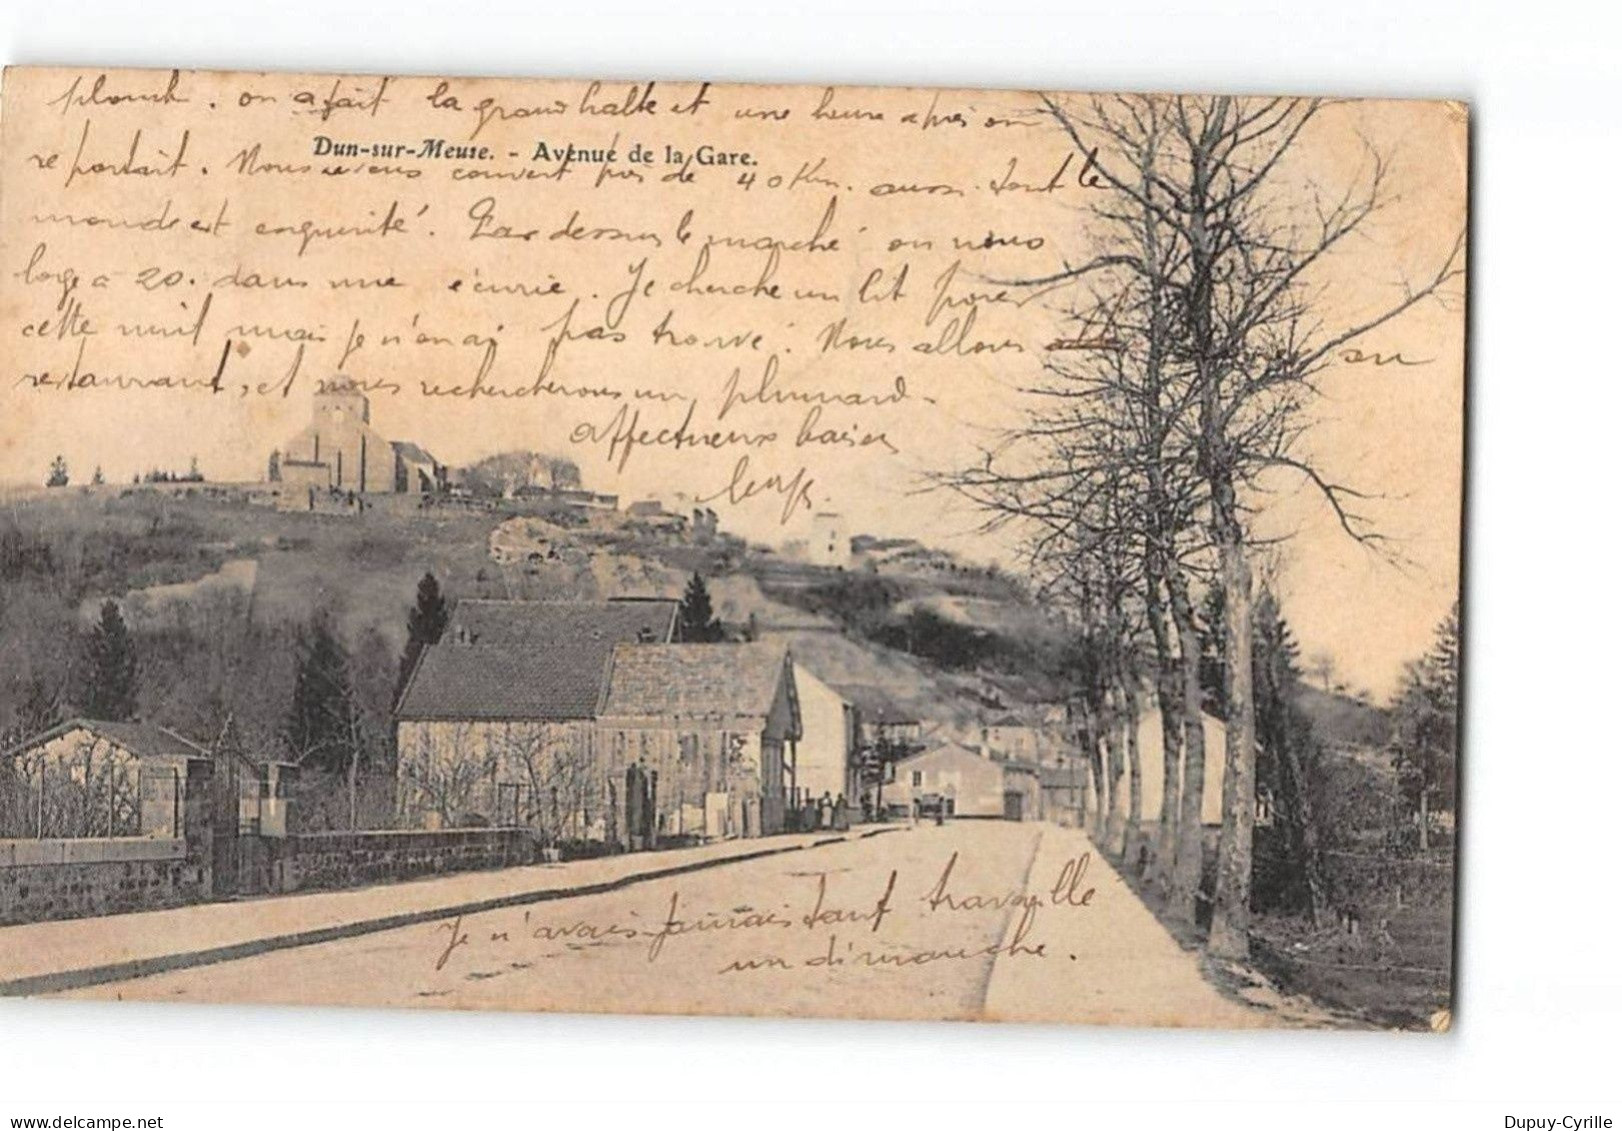 plomb. on a fait la grand halte et une heure après on
Dun-sur-Meuse. - Avenue de la Gare.
repartait. Nous avons couvert près de 40 Km. aussi tout le
monde est enquinté. Par dessus le marché on nous
loge à 20. dans une écurie. Je cherche un lit pour
cette nuit mais je n'en ai pas trouvé. Nous allons au
restaurant, et nous rechercherons un plumard.
affectueux baiser
Je n'avais jamais tant travaillé
un dimanche.
Dupuy-Cyrille
delcampe.net